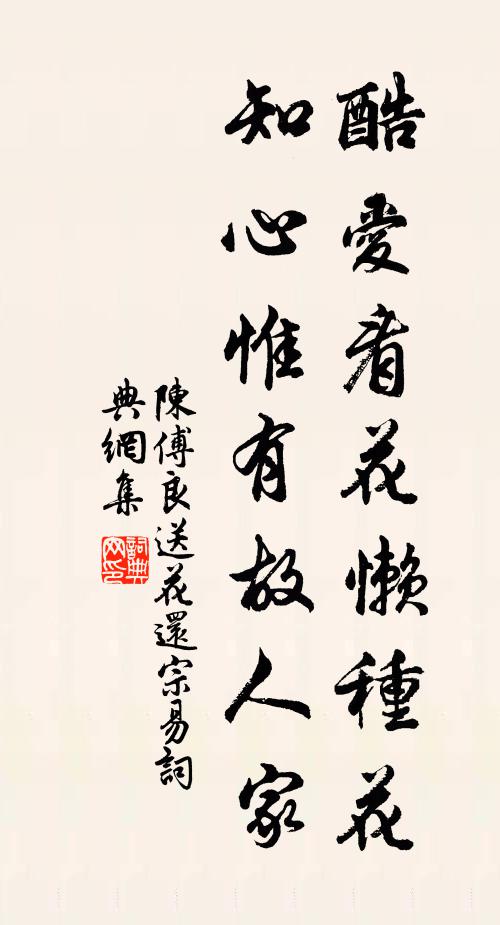 酷愛看花懶種花
知心惟有故人家
陳傅良送花還宗易詞
典網集
詞典
网印